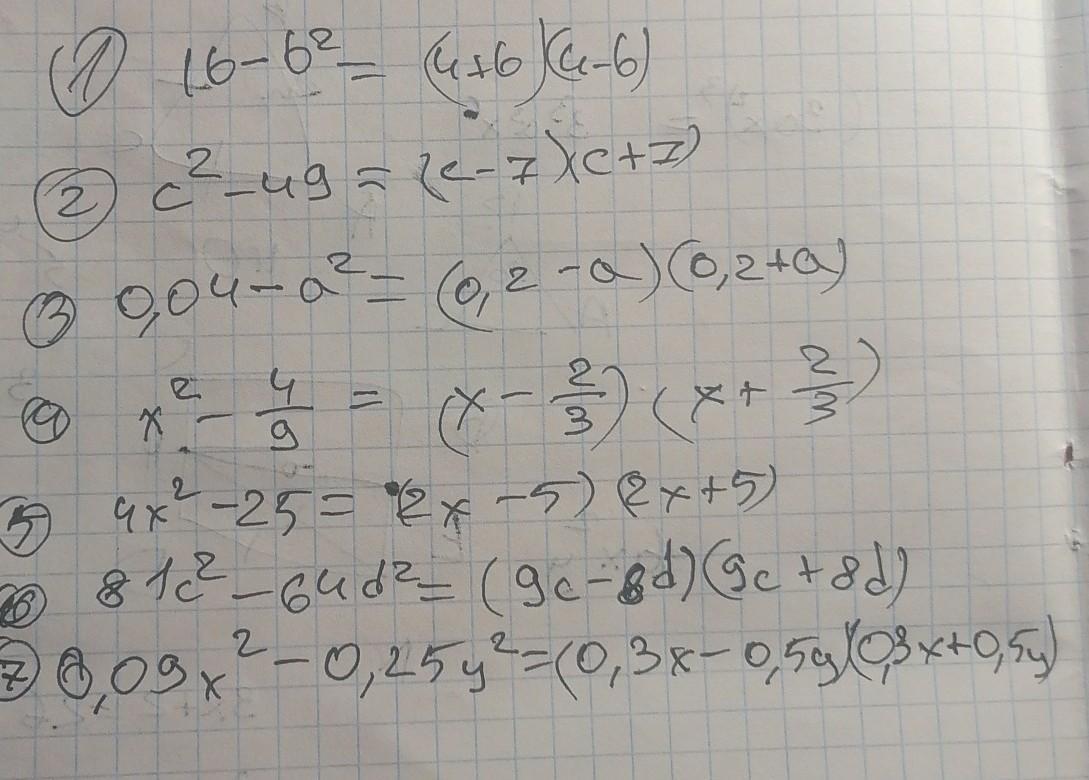 ① 16 - b² = (4+b)(4-b)
② c² - 49 = (c-7)(c+7)
③ 0,04 - a² = (0,2-a)(0,2+a)
④ x² - 4/9 = (x - 2/3)(x + 2/3)
⑤ 4x² - 25 = (2x-5)(2x+5)
⑥ 81c² - 64d² = (9c-8d)(9c+8d)
⑦ 0,09x² - 0,25y² = (0,3x-0,5y)(0,3x+0,5y)